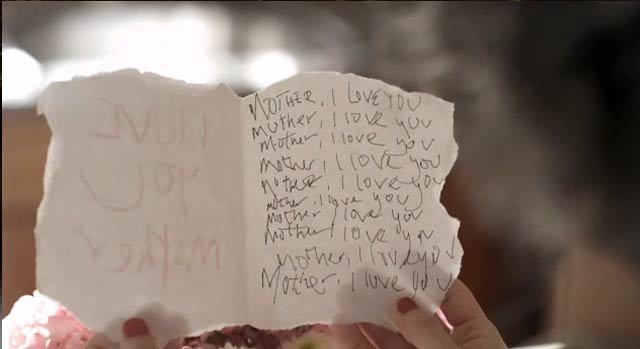 I LOVE
YOU
Mother
MOTHER, I LOVE YOU
Mother, I love you
Mother, I love you
Mother, I LOVE you
Mother, I love you
mother, I love you
Mother I love you
Mother I love you
Mother, I love you
Mother, I love you